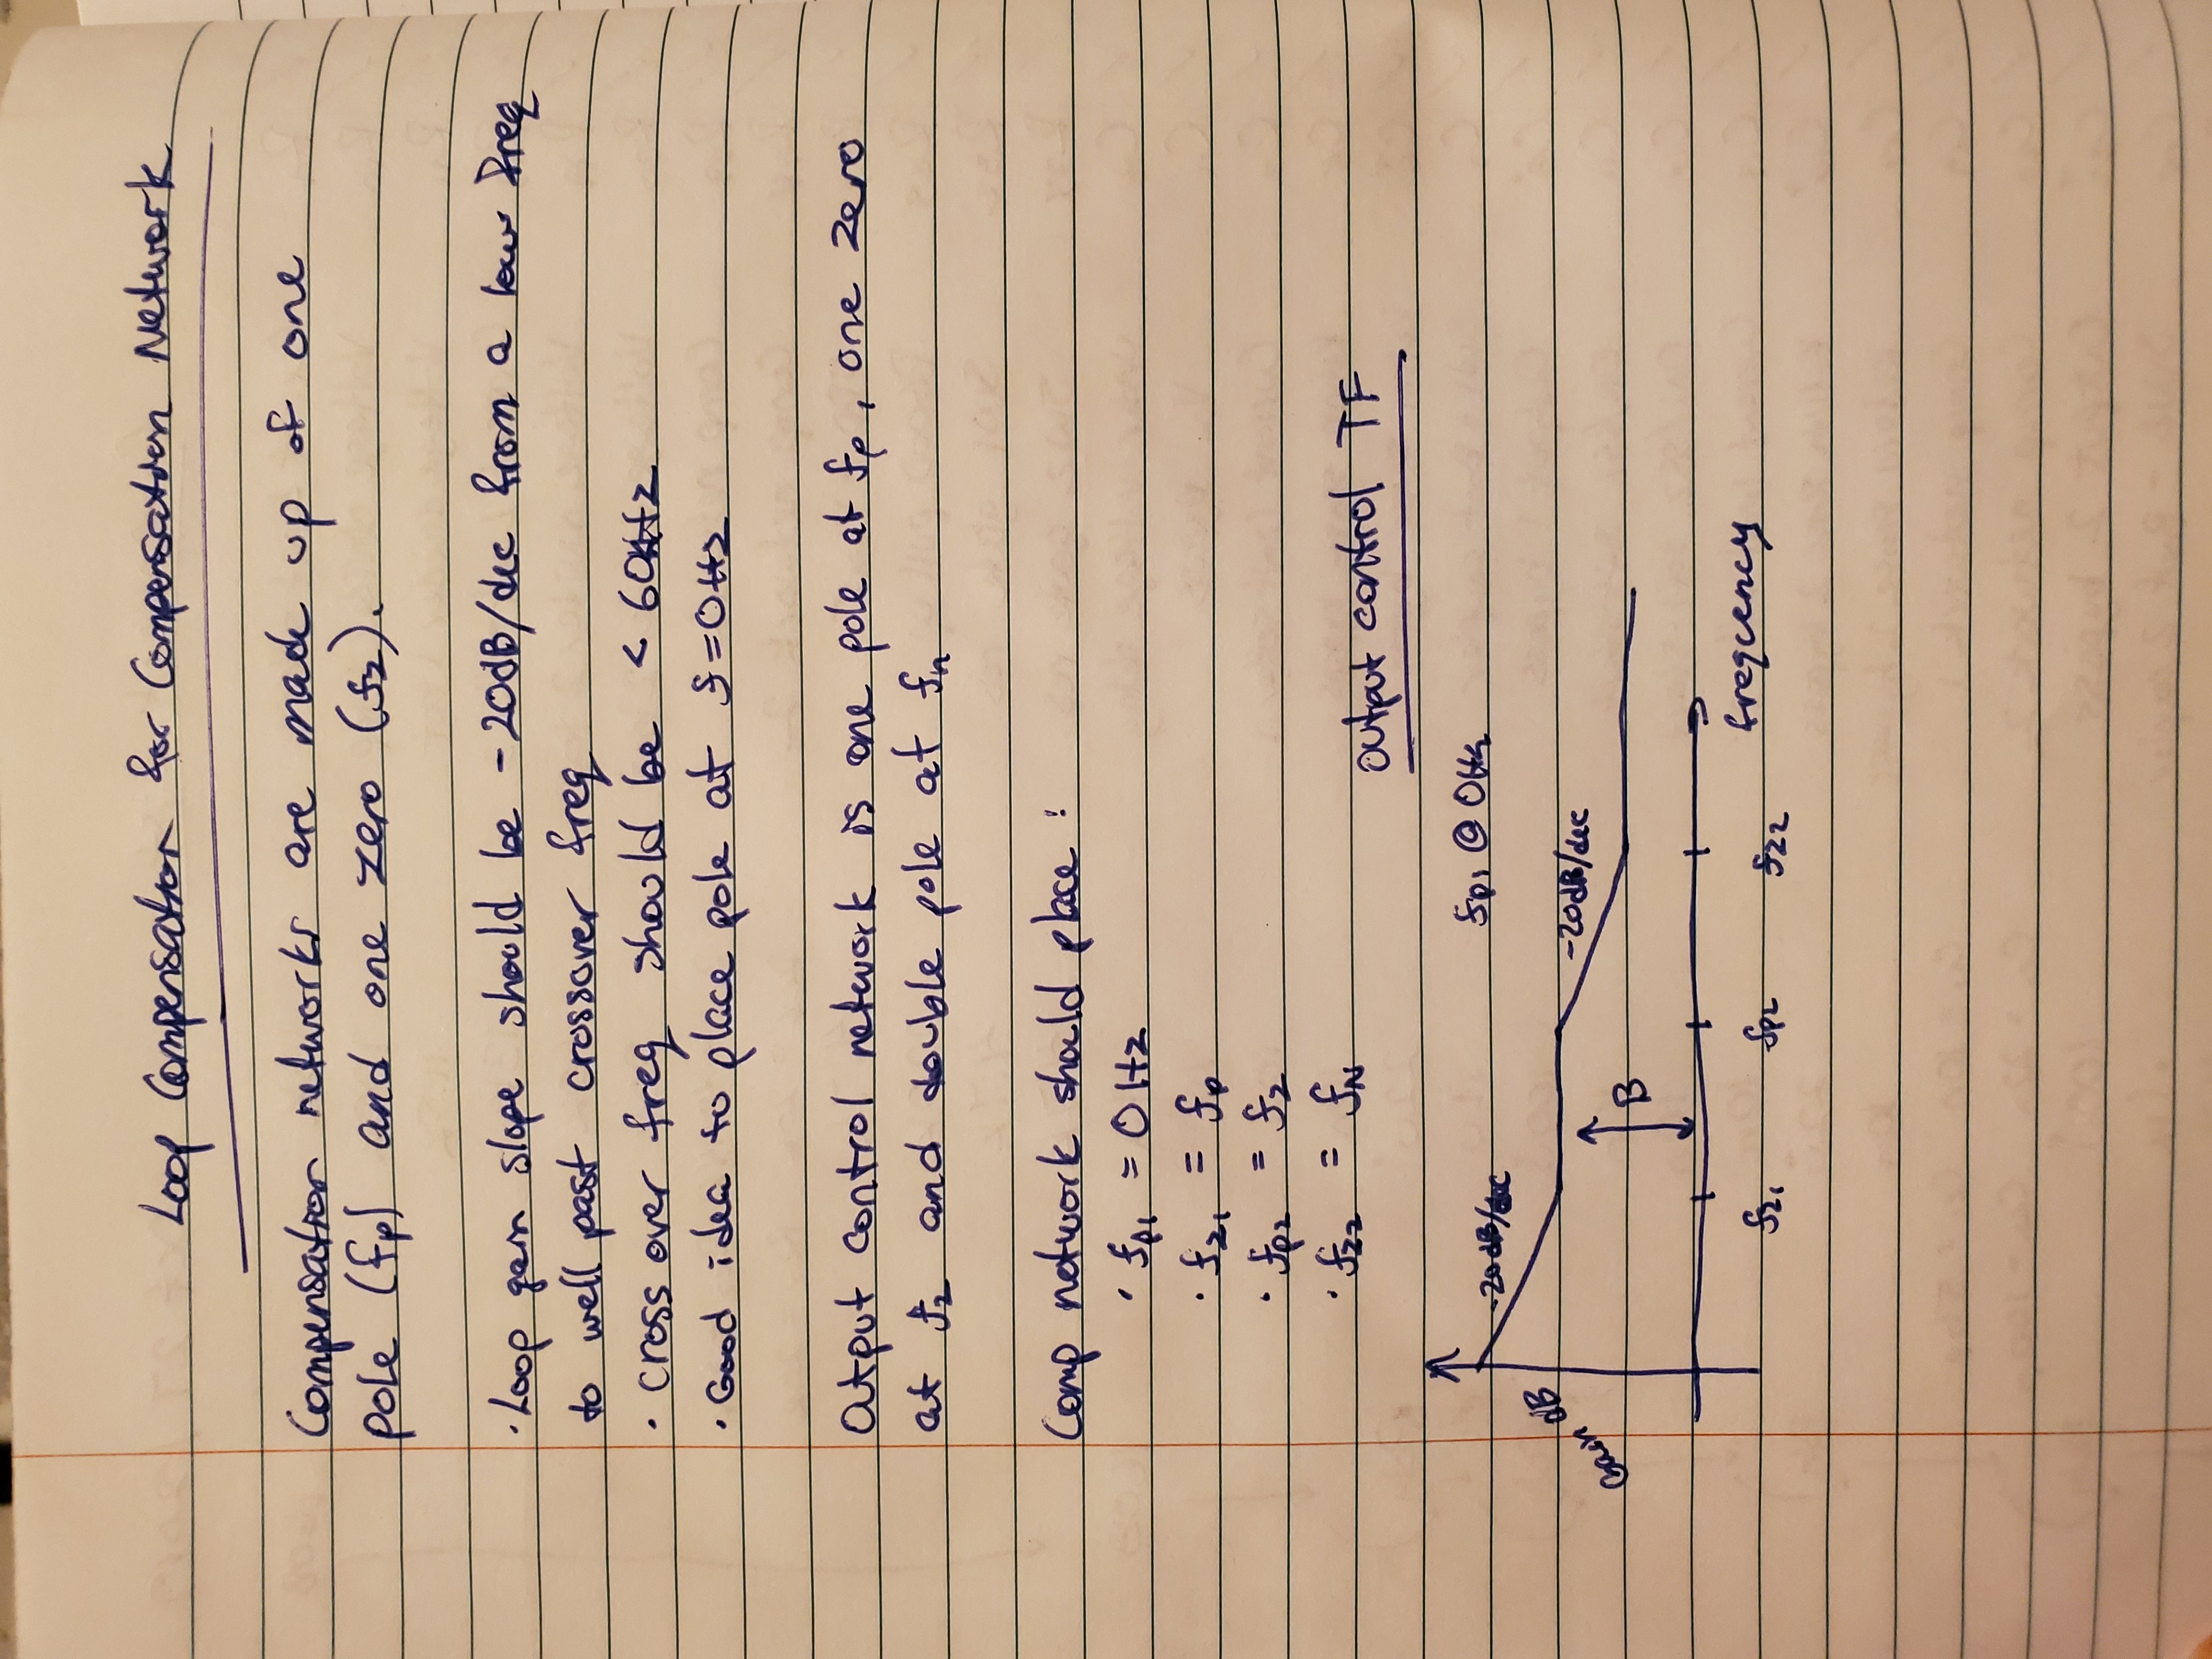 Loop Compensation for Compensation Network
Compensation networks are made up of one
pole (fp) and one zero (fz).
· Loop gain slope should be -20dB/dec from a low freq
to well past crossover freq
· Cross over freq should be < 60kHz
· Good idea to place pole at f=0Hz
Output control network is one pole at fp, one zero
at fz and double pole at fn
Comp network should place:
· fp1 = 0Hz
· fz1 = fp
· fp2 = fz
· fz2 = fN
Output control TF
fp1 @ 0Hz
-20dB/dec
Gain dB
-20dB/dec
B
frequency
fz1 fp2 fz2